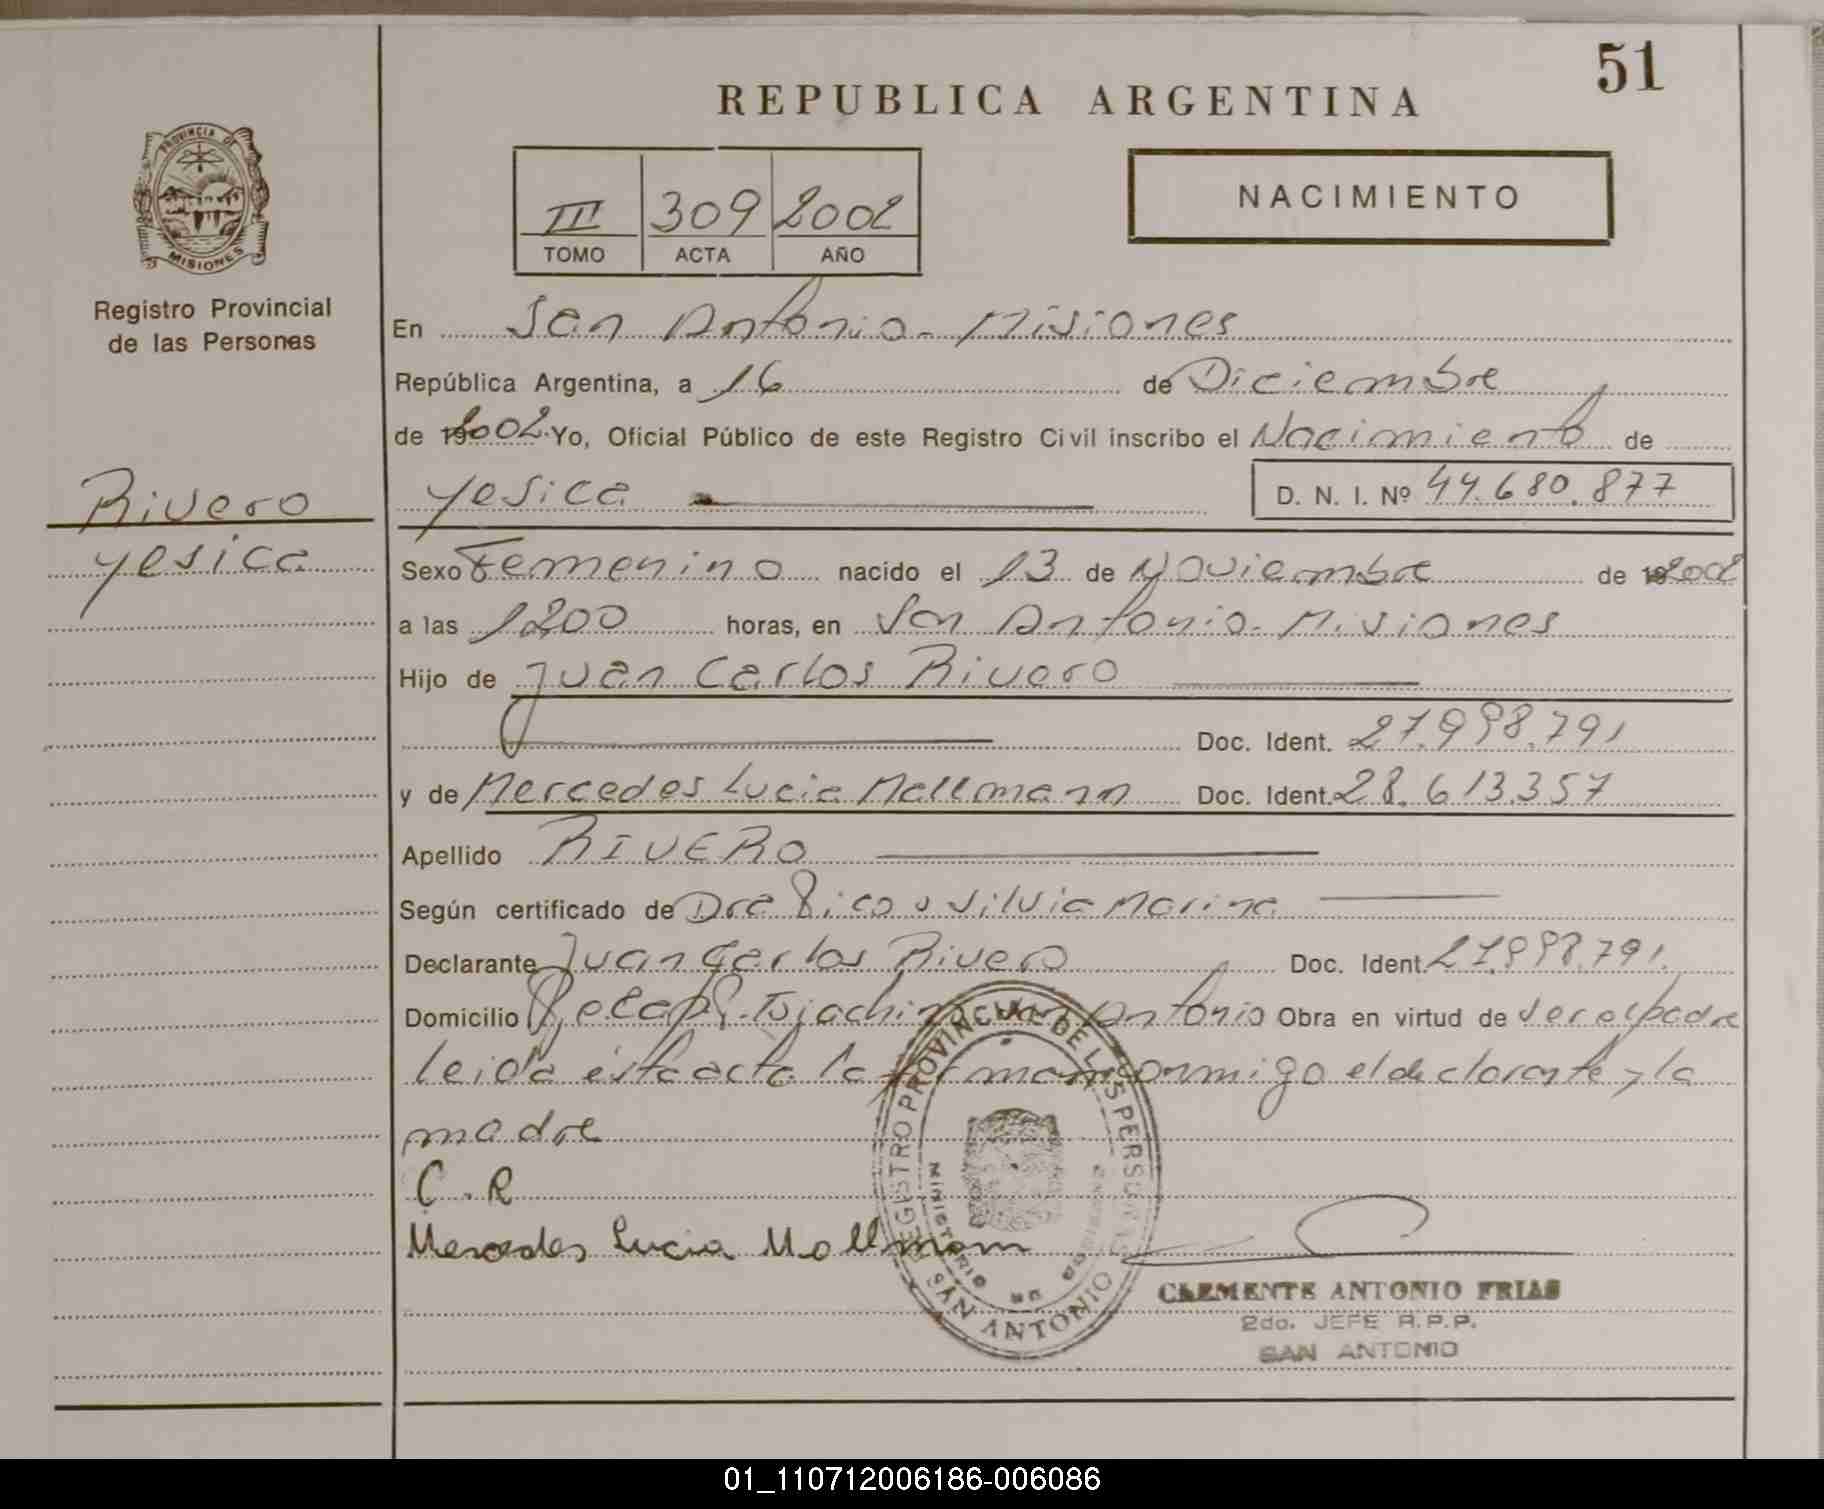 51
REPUBLICA ARGENTINA
PROVINCIA DE
MISIONES
Registro Provincial
de las Personas
III 309 2002
TOMO ACTA AÑO
NACIMIENTO
En San Antonio - Misiones
República Argentina, a 16 de Diciembre
de 2002 Yo, Oficial Público de este Registro Civil inscribo el Nacimiento de
Rivero
Yesica
Yesica D. N. I. Nº 44.680.877
Sexo Femenino nacido el 13 de Noviembre de 2002
a las 1200 horas, en San Antonio - Misiones
Hijo de Juan Carlos Rivero
Doc. Ident. 27.998.791
y de Mercedes Lucia Mallmann Doc. Ident. 28.613.357
Apellido RIVERO
Según certificado de Dra Silvia Marina
Declarante Juan Carlos Rivero Doc. Ident. 27.998.791.
Domicilio Antonio Obra en virtud de ser el padre
leida esta acta la firman conmigo el declarante y la
madre
C.R
Mercedes Lucia Mollmann
REGISTRO PROVINCIAL DE LAS PERSONAS
MINISTERIO DE GOBIERNO
SAN ANTONIO
CLEMENTE ANTONIO FRIAS
2do. JEFE R.P.P.
SAN ANTONIO
01_110712006186-006086